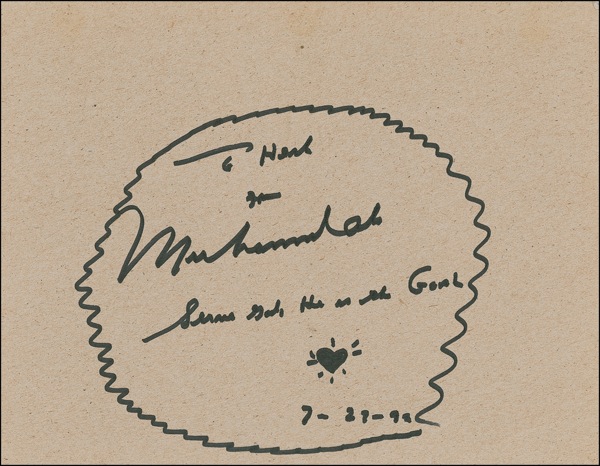 To Herb
From
Muhammad Ali
Serve God, He is the Goal